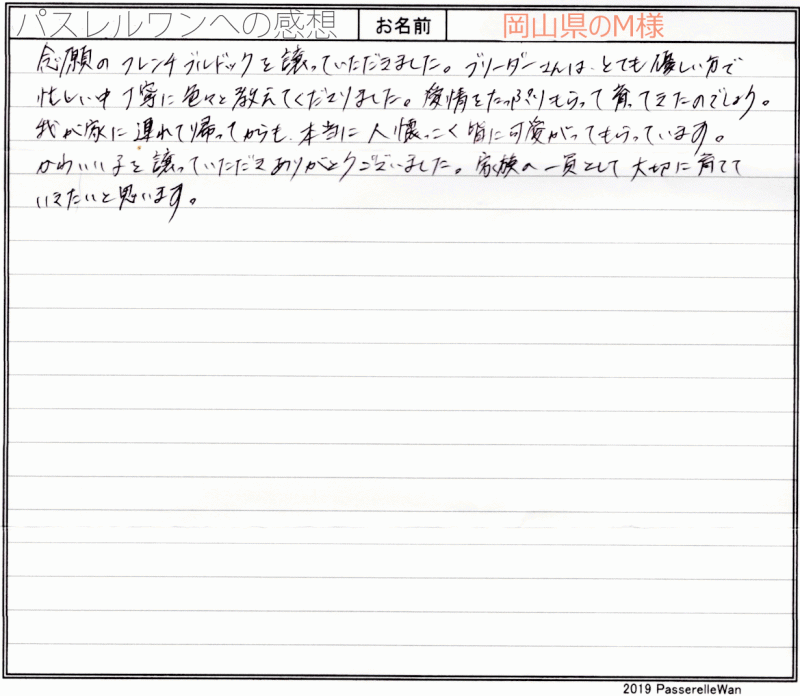 パスレルワンへの感想 お名前 岡山県のM様
念願のフレンチブルドックを譲っていただきました。ブリーダーさんは、とても優しい方で
忙しい中丁寧に色々と教えてくださりました。愛情をたっぷりもらって育ってきたのでしょう。
我が家に連れて帰ってからも、本当に人懐っこく皆に可愛がってもらっています。
かわいい子を譲っていただきありがとうございました。家族の一員として大切に育てて
いきたいと思います。
2019 PasserelleWan